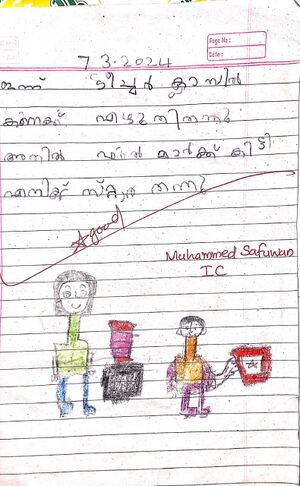 Page No :
Date :
7 3.2024
ഇന്ന് ടീച്ചർ ക്ലാസിൽ
കണക്ക് എഴുതിതന്നു
അതിൽ ഫുൾ മാർക്ക് കിട്ടി
എനിക്ക് സ്റ്റാർ തന്നു
good
Muhammed Safuwan
I C